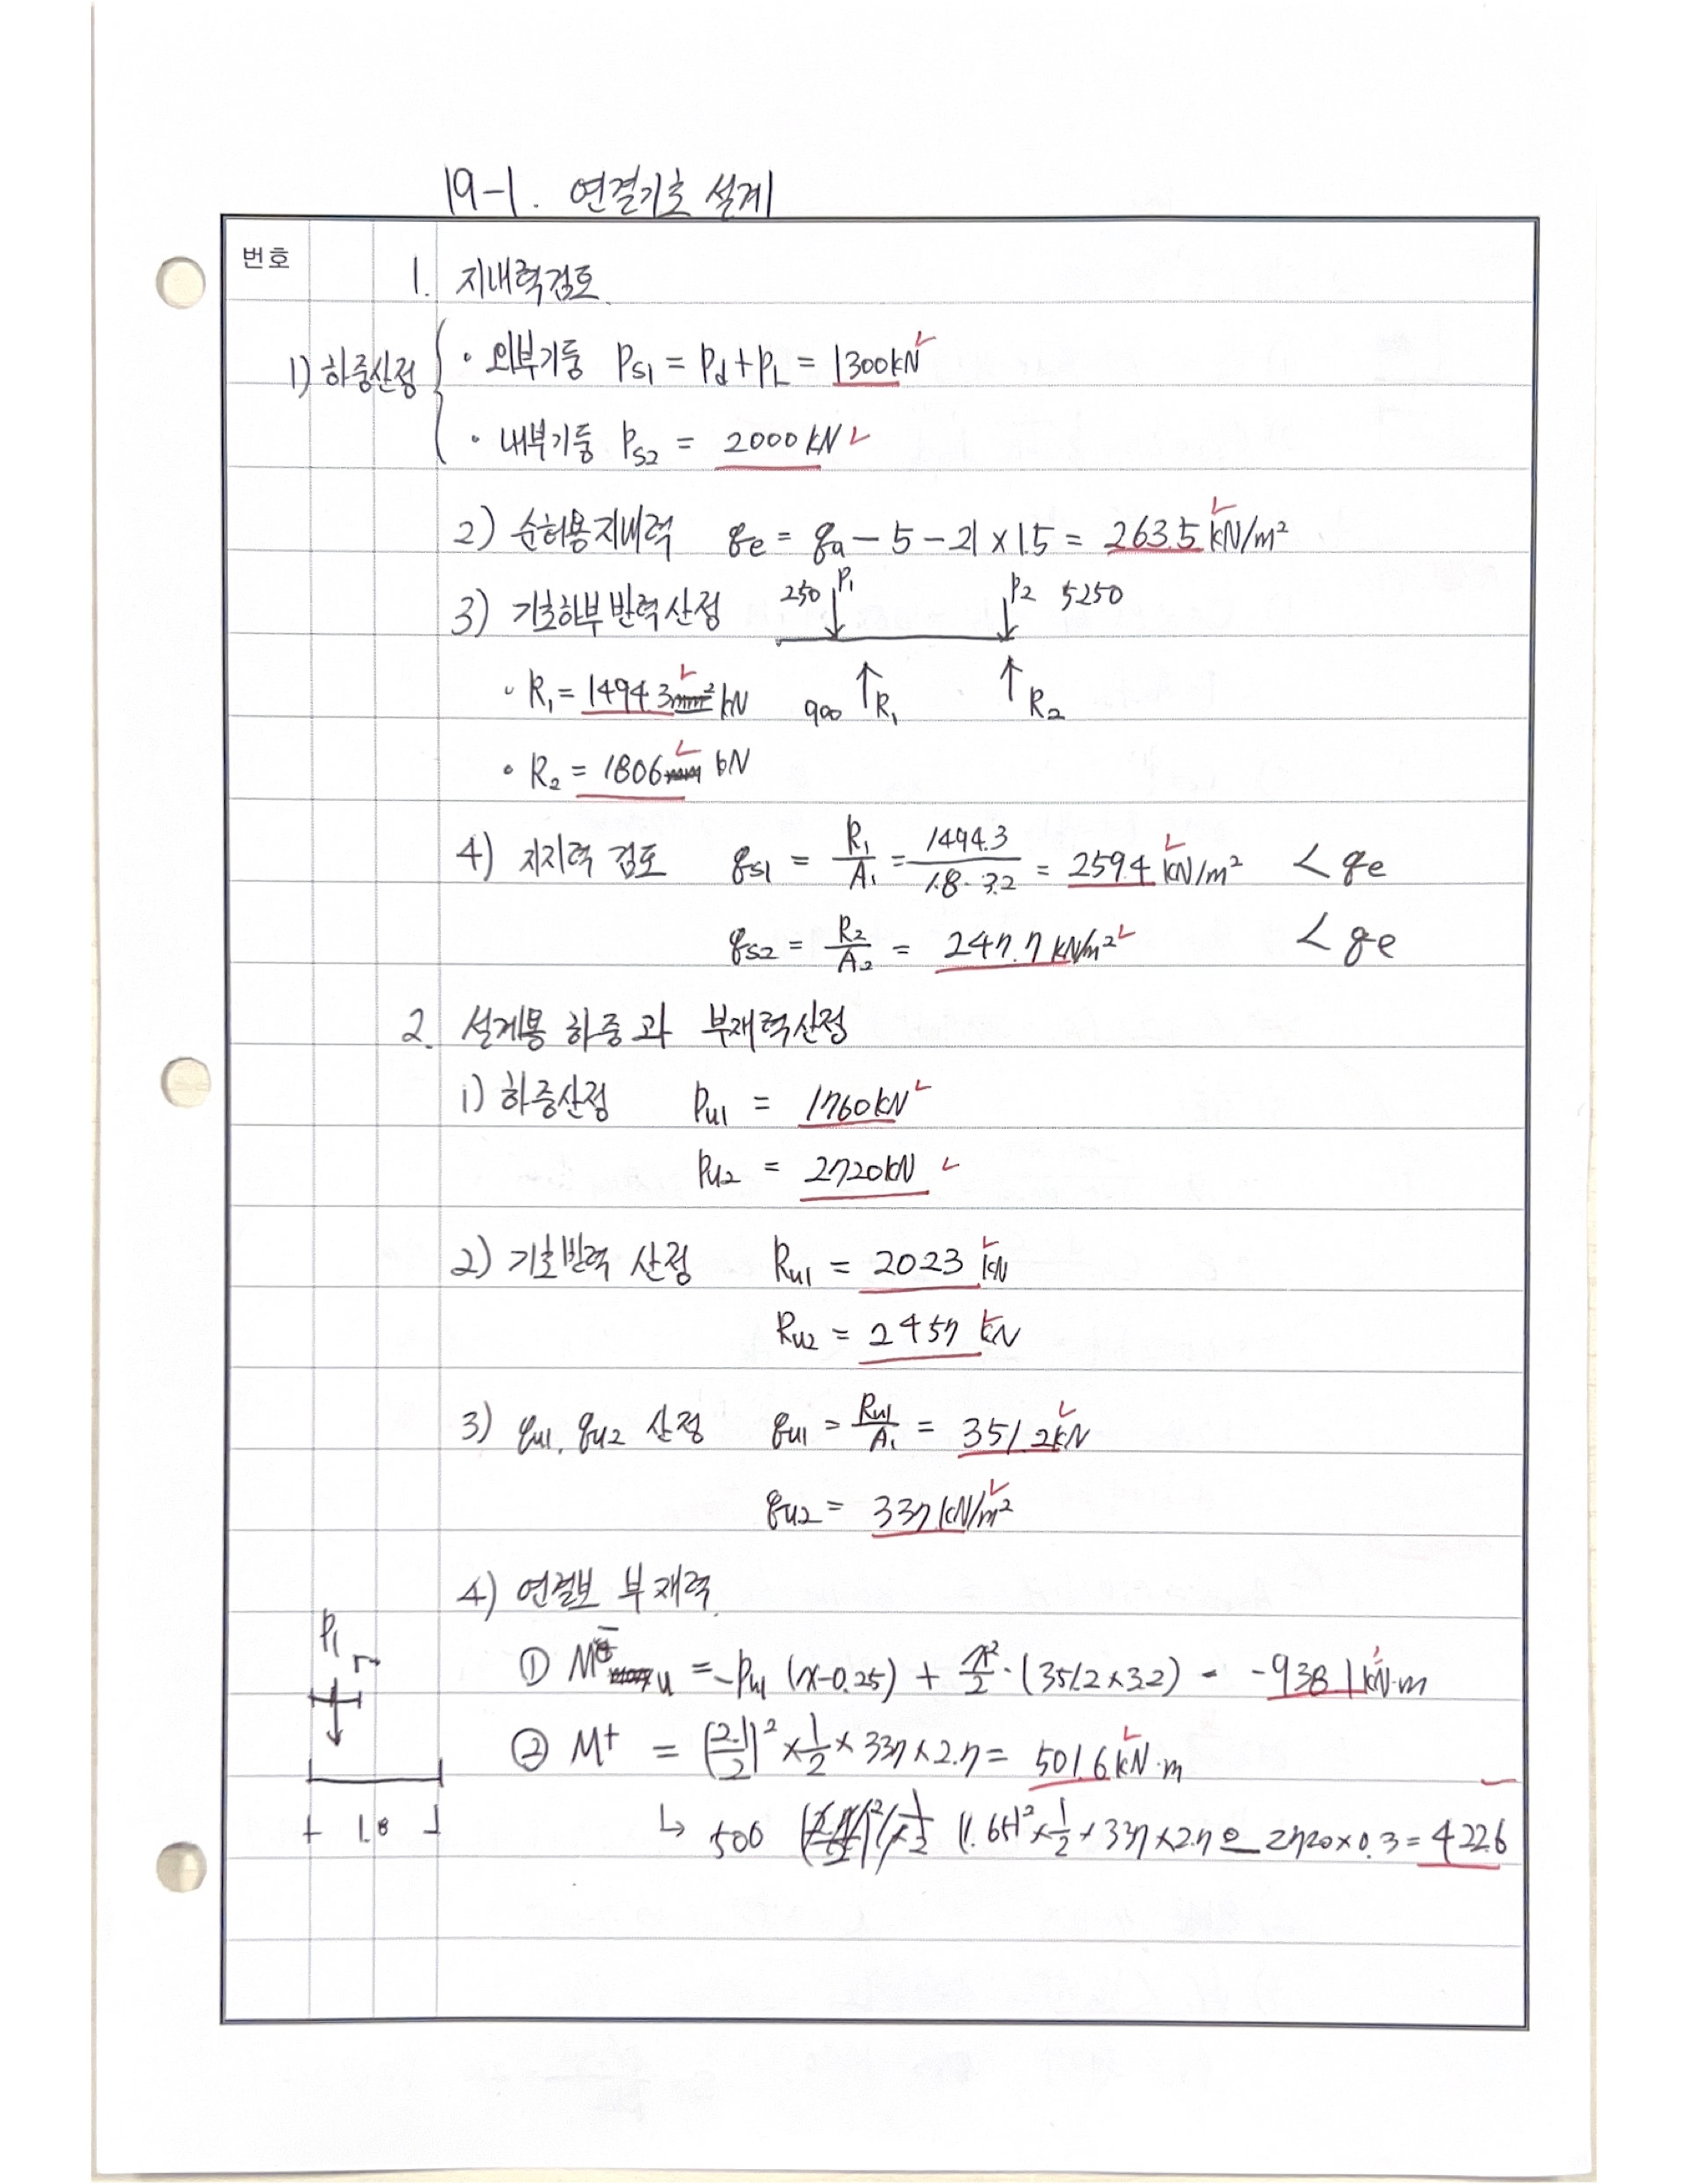 19-1. 연결기초 설계
번호
1. 지내력검토
1) 하중산정
· 외부기둥 Ps1 = Pd+PL = 1300kN
· 내부기둥 Ps2 = 2000kN
2) 순허용지내력 qe = qa - 5 - 21 × 1.5 = 263.5 kN/m²
3) 기초하부 반력산정 250 P1 P2 5250
· R1 = 1494.3 kN 900 R1 R2
· R2 = 1806 kN
4) 지지력 검토 qs1 = R1/A1 = 1494.3/1.8·3.2 = 259.4 kN/m² < qe
qs2 = R2/A2 = 247.7 kN/m² < qe
2. 설계용 하중과 부재력산정
1) 하중산정 Pu1 = 1760kN
Pu2 = 2720kN
2) 기초반력 산정 Ru1 = 2023 kN
Ru2 = 2457 kN
3) qu1, qu2 산정 qu1 = Ru1/A1 = 351.2kN
qu2 = 337 kN/m²
4) 연결보 부재력
P1
① M⁻u = -Pu1 (x-0.25) + x²/2 · (351.2×3.2) = -938.1kN·m
② M⁺ = (2.1/2)² × 1/2 × 337 × 2.7 = 501.6 kN·m
1.8
↳ 500 (1.65)² × 1/2 × 337 × 2.7 - 2720 × 0.3 = 422.6